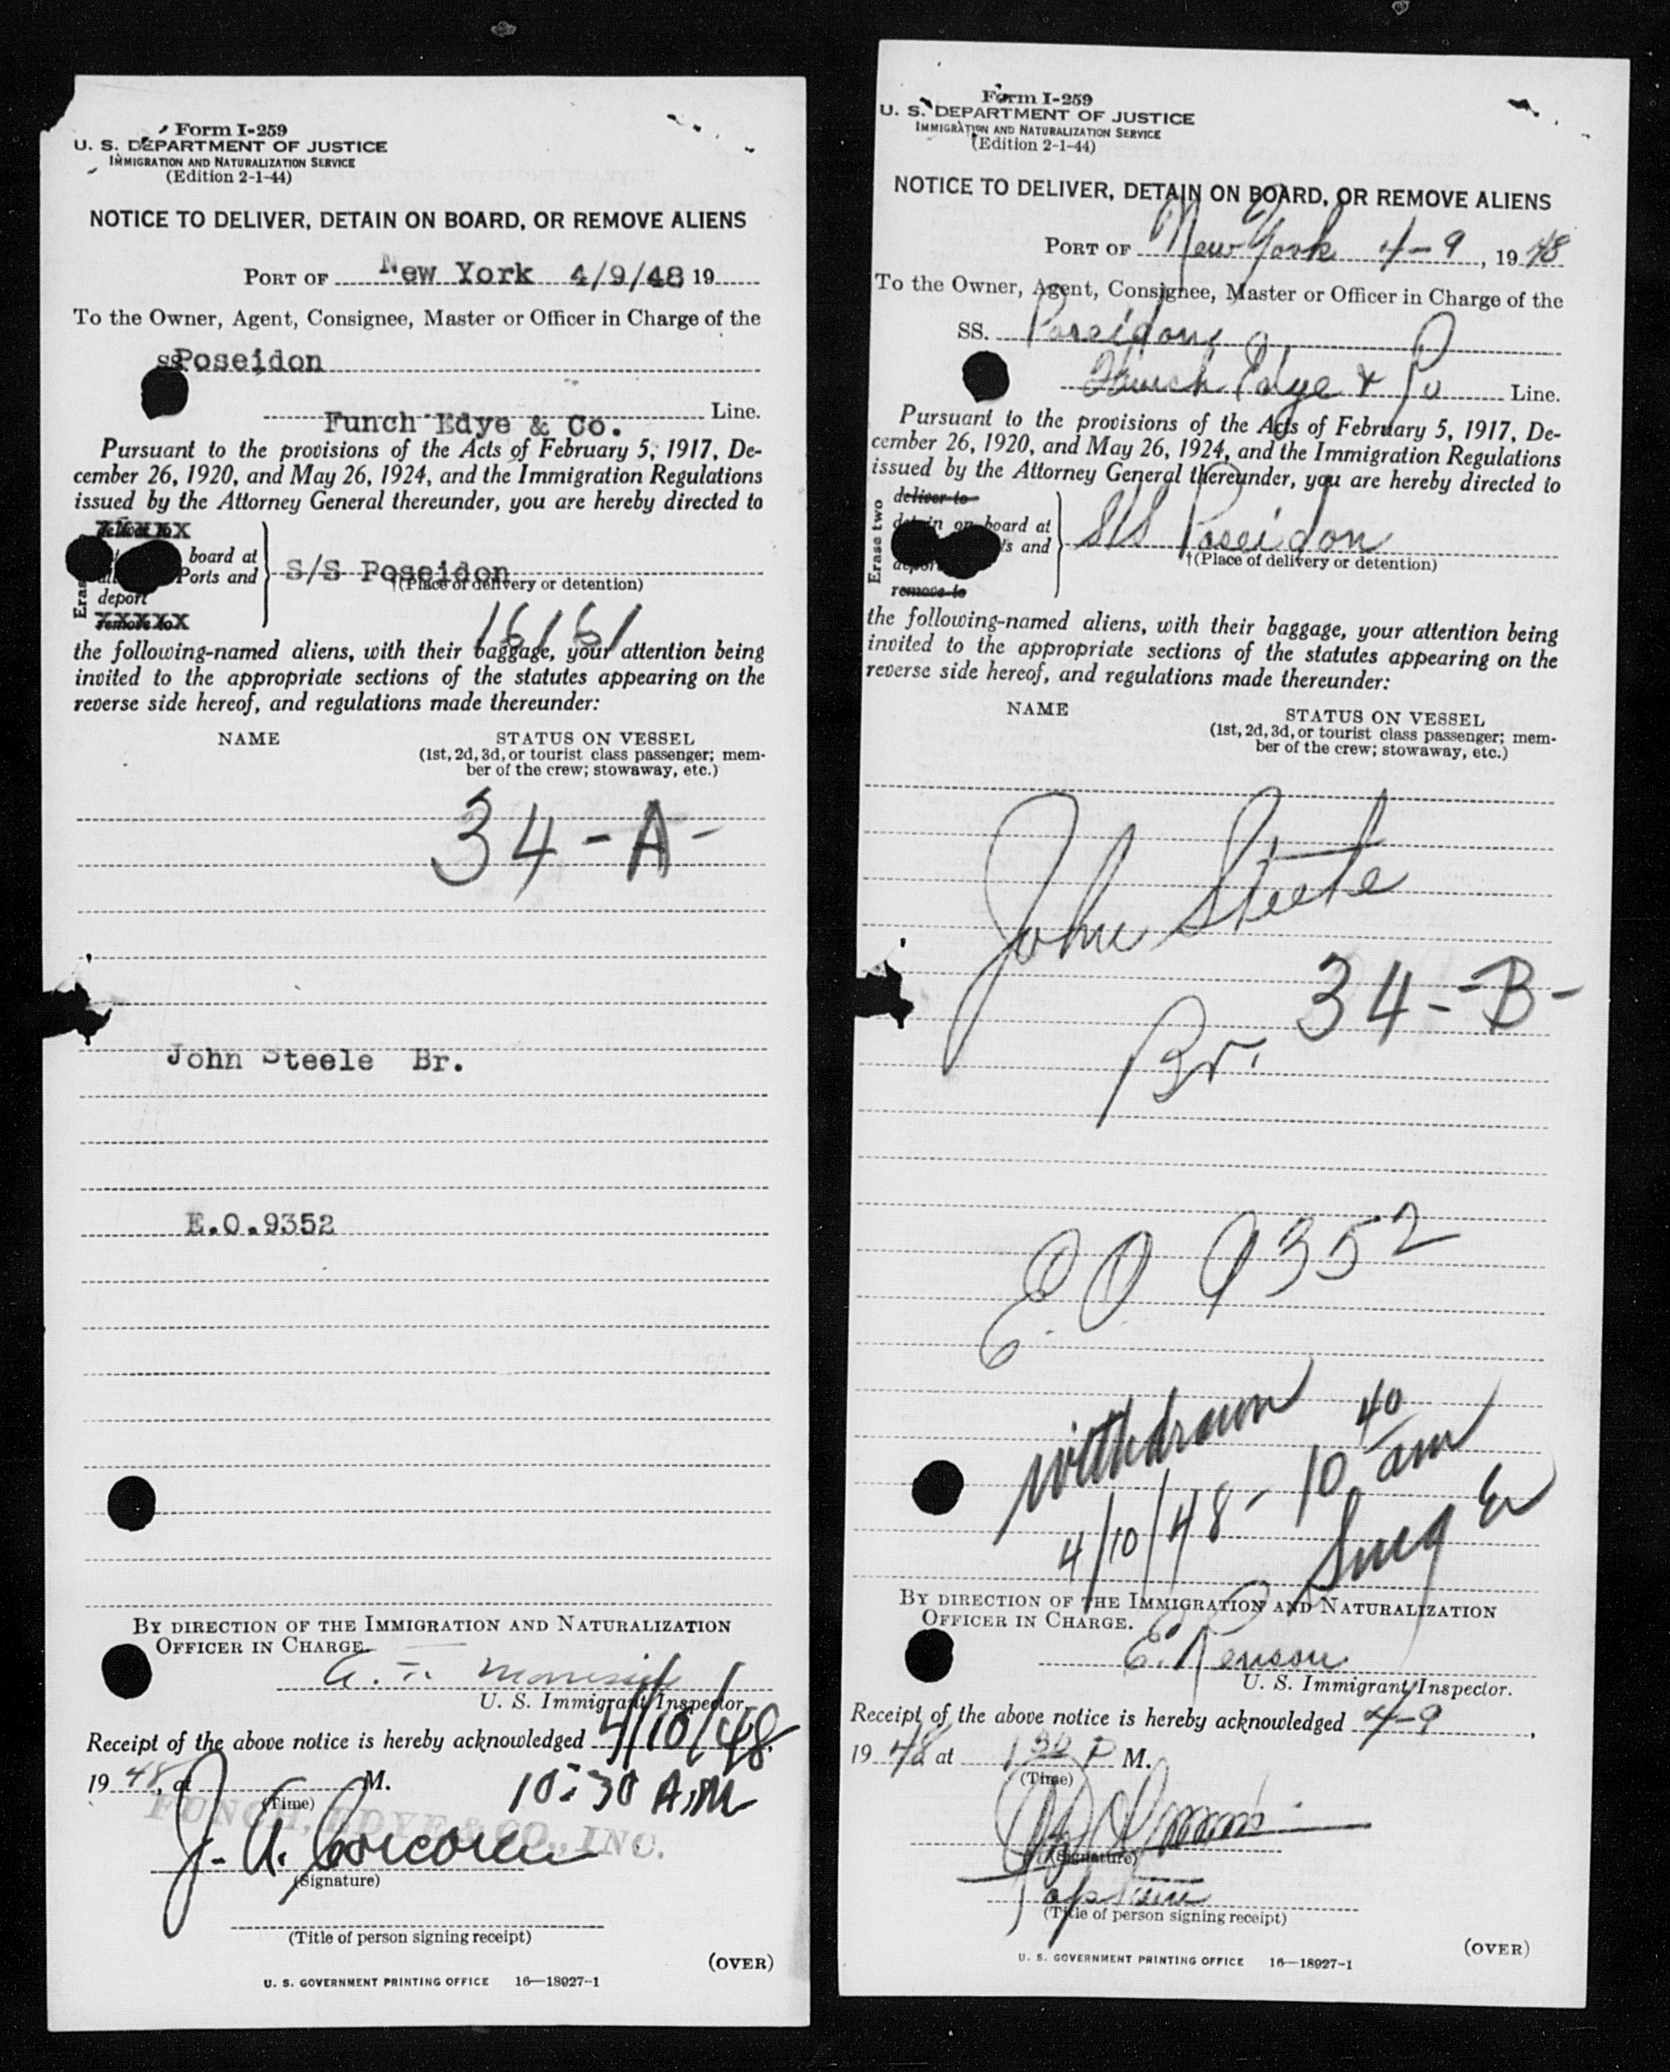 Form I-259
U. S. DEPARTMENT OF JUSTICE
IMMIGRATION AND NATURALIZATION SERVICE
(Edition 2-1-44)
NOTICE TO DELIVER, DETAIN ON BOARD, OR REMOVE ALIENS
PORT OF New York 4/9/48 19
To the Owner, Agent, Consignee, Master or Officer in Charge of the
SS Poseidon
Funch Edye & Co. Line.
Pursuant to the provisions of the Acts of February 5, 1917, De-
cember 26, 1920, and May 26, 1924, and the Immigration Regulations
issued by the Attorney General thereunder, you are hereby directed to
board at
Ports and
deport
S/S Poseidon
†(Place of delivery or detention)
remove to
16161
the following-named aliens, with their baggage, your attention being
invited to the appropriate sections of the statutes appearing on the
reverse side hereof, and regulations made thereunder:
NAME
STATUS ON VESSEL
(1st, 2d, 3d, or tourist class passenger; mem-
ber of the crew; stowaway, etc.)
34-A-
John Steele Br.
E.O.9352
BY DIRECTION OF THE IMMIGRATION AND NATURALIZATION
OFFICER IN CHARGE.
U. S. Immigrant Inspector.
Receipt of the above notice is hereby acknowledged 4/10/48,
1948, at M. 10:30 A.M
(Time)
FUNCH, EDYE & CO., INC.
J. A. Corcoran
(Signature)
(Title of person signing receipt)
(OVER)
U. S. GOVERNMENT PRINTING OFFICE 16—18927-1
Form I-259
U. S. DEPARTMENT OF JUSTICE
IMMIGRATION AND NATURALIZATION SERVICE
(Edition 2-1-44)
NOTICE TO DELIVER, DETAIN ON BOARD, OR REMOVE ALIENS
PORT OF New York 4-9, 1948
To the Owner, Agent, Consignee, Master or Officer in Charge of the
SS. Poseidon
Funch Edye & Co Line.
Pursuant to the provisions of the Acts of February 5, 1917, De-
cember 26, 1920, and May 26, 1924, and the Immigration Regulations
issued by the Attorney General thereunder, you are hereby directed to
Erase two
deliver to
detain on board at
and
S/S Poseidon
†(Place of delivery or detention)
remove to
the following-named aliens, with their baggage, your attention being
invited to the appropriate sections of the statutes appearing on the
reverse side hereof, and regulations made thereunder:
NAME
STATUS ON VESSEL
(1st, 2d, 3d, or tourist class passenger; mem-
ber of the crew; stowaway, etc.)
John Steele
34--B-
Br.
E.O. 9352
withdrawn
4/10/48 - 10 40 am
BY DIRECTION OF THE IMMIGRATION AND NATURALIZATION
OFFICER IN CHARGE.
E. Renson
U. S. Immigrant Inspector.
Receipt of the above notice is hereby acknowledged 4-9,
1948 at 1 30 P M.
(Time)
(Signature)
(Title of person signing receipt)
(OVER)
U. S. GOVERNMENT PRINTING OFFICE 16—18927-1